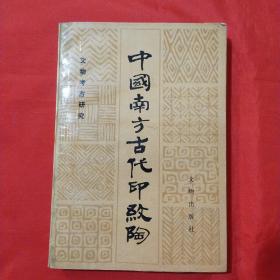 文物考古研究
中國南方古代印紋陶
文物出版社